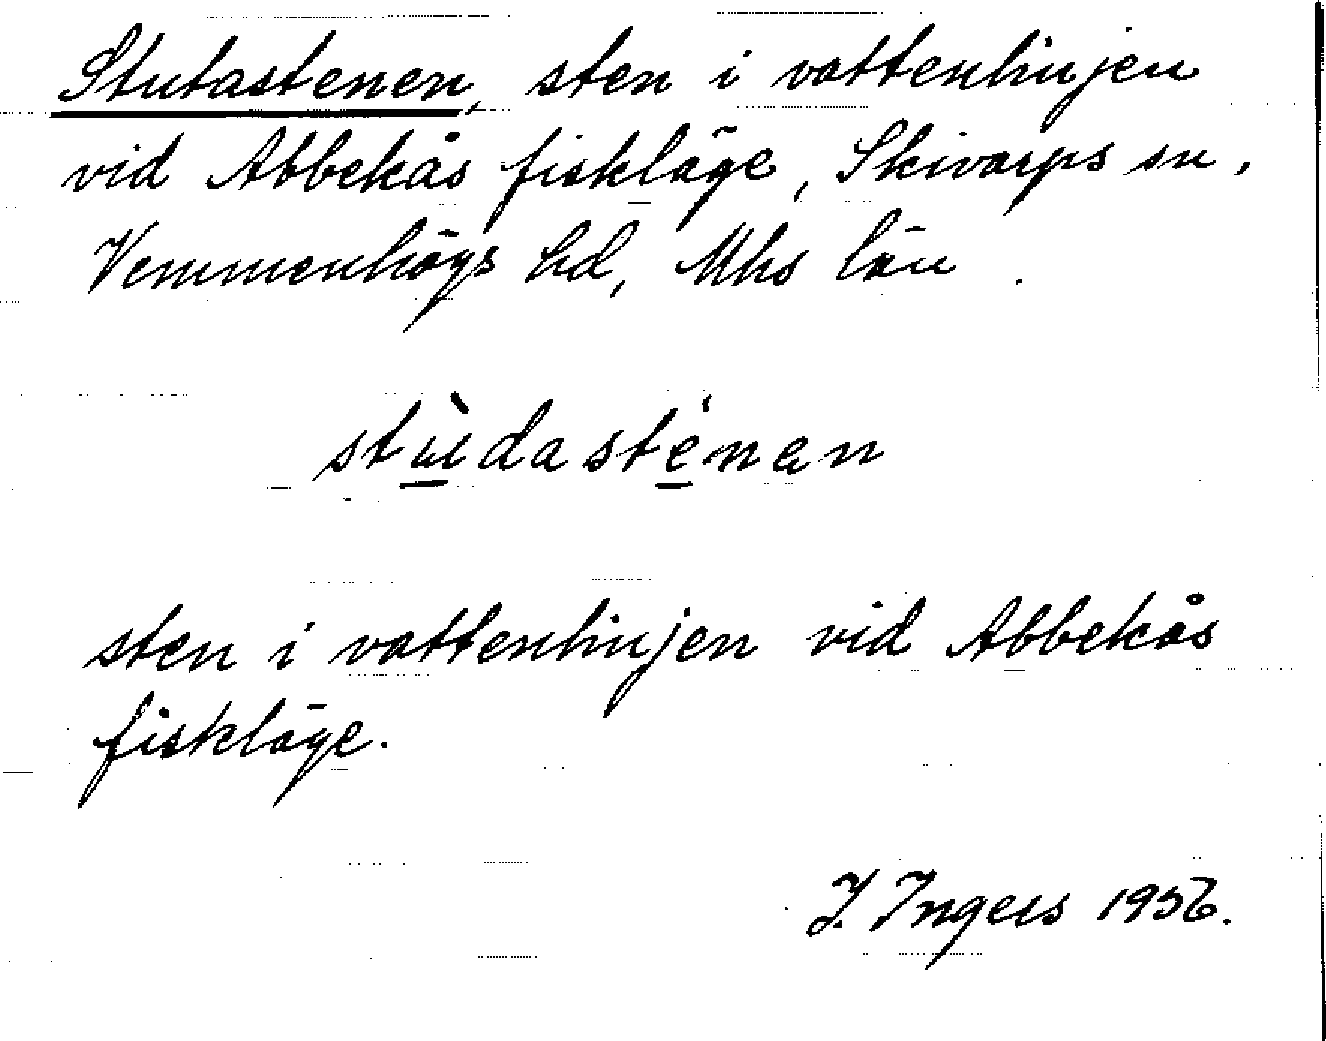 Stutastenen, sten i vattenlinjen
vid Abbekås fiskläge, Skivarps sn,
Vemmenhögs hd, Mhs län.
stùdasténan
sten i vattenlinjen vid Abbekås
fiskläge.
I. Ingers 1956.